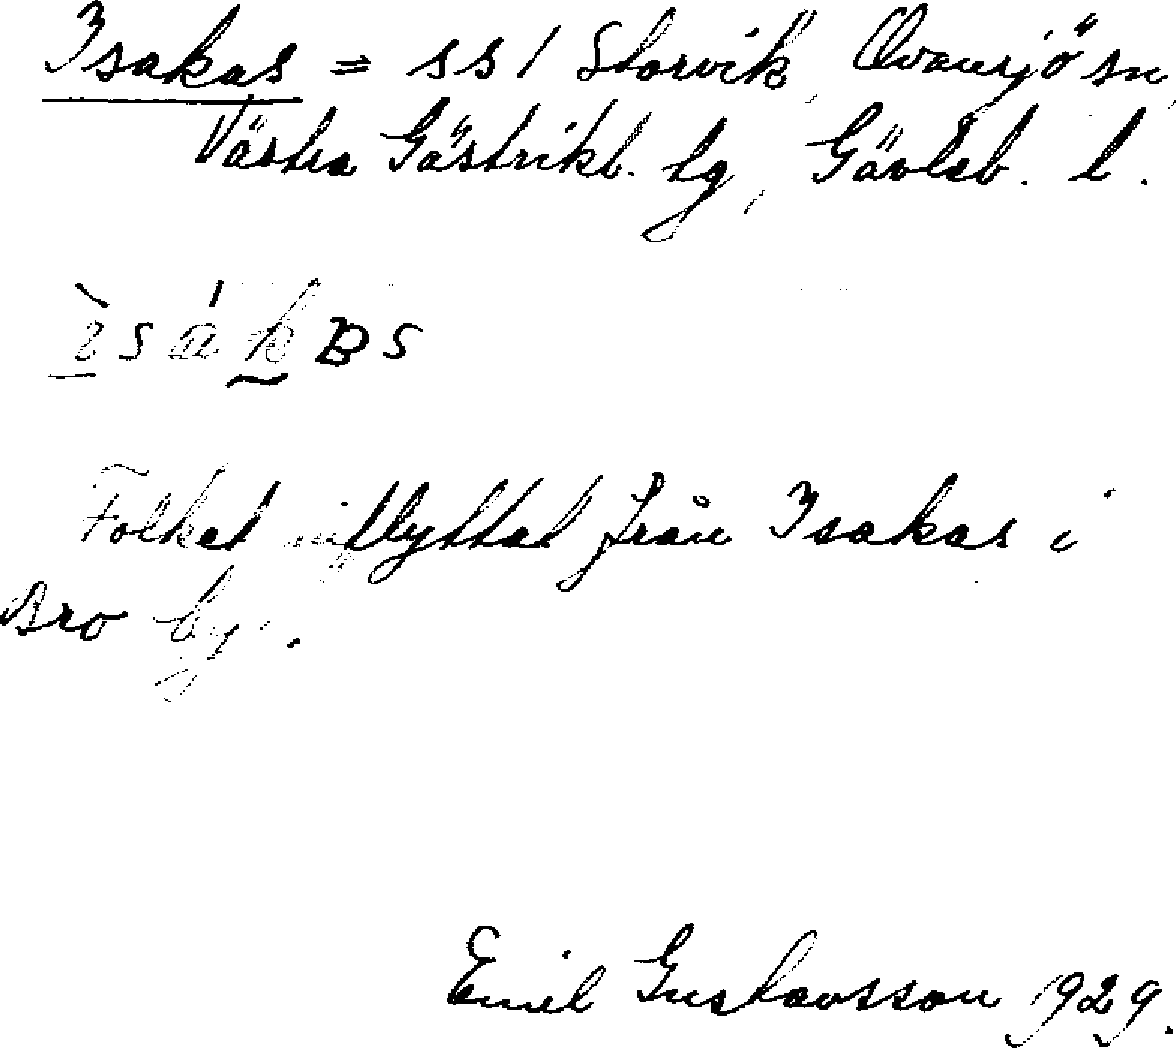 Isakas = ss1 Storvik, Ovansjö sn,
Västra Gästrikl. tg, Gävleb. l.
ìsákɒs
Folket inflyttat från Isakas i
Bro by.
Emil Gustavsson 1929.